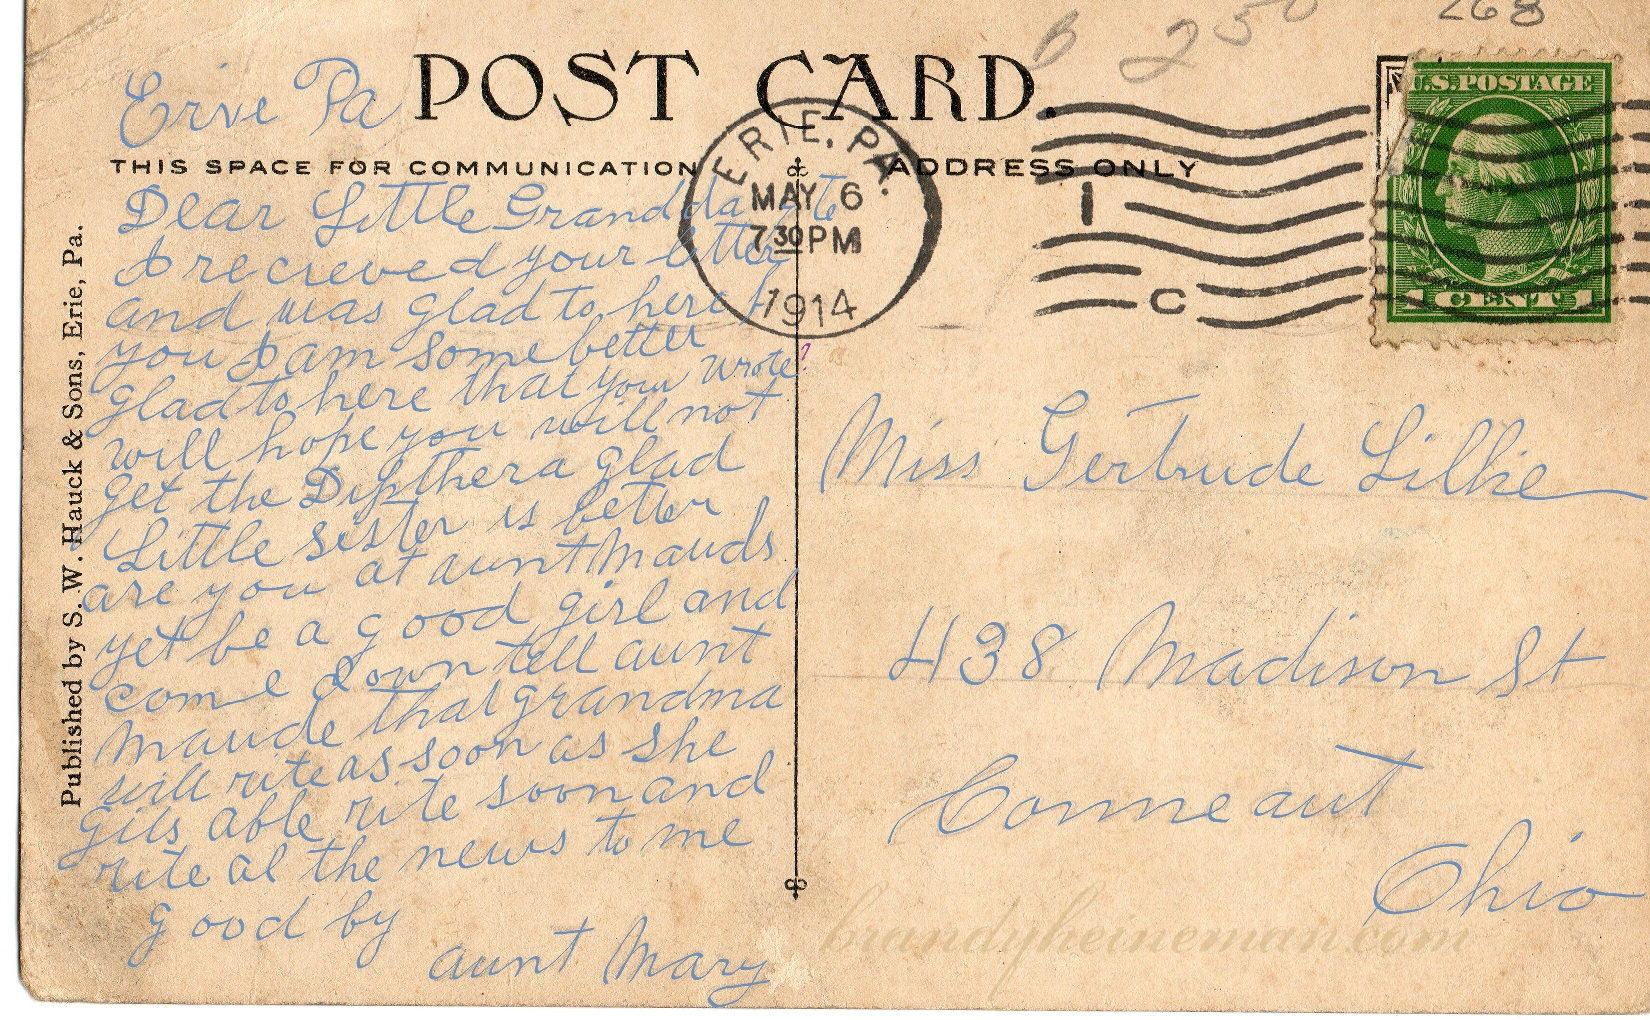 B 250
268
Erive Pa
POST CARD.
THIS SPACE FOR COMMUNICATION
ADDRESS ONLY
ERIE, PA.
MAY 6
7 30 PM
1914
1
C
U.S. POSTAGE
1 CENT 1
Dear Little Grandda
I recieved your letter
and was glad to here
you I am some better
glad to here that you wrote
will hope you will not
get the Dipthera glad
Little sister is better
are you at aunt Mauds
yet be a good girl and
come down tell aunt
Maude that grandma
will rite as soon as she
gits able rite soon and
rite al the news to me
good by
aunt Mary
Miss Gertrude Lillie
438 Madison St
Conneaut
Ohio
Published by S. W. Hauck & Sons, Erie, Pa.
brandyheineman.com